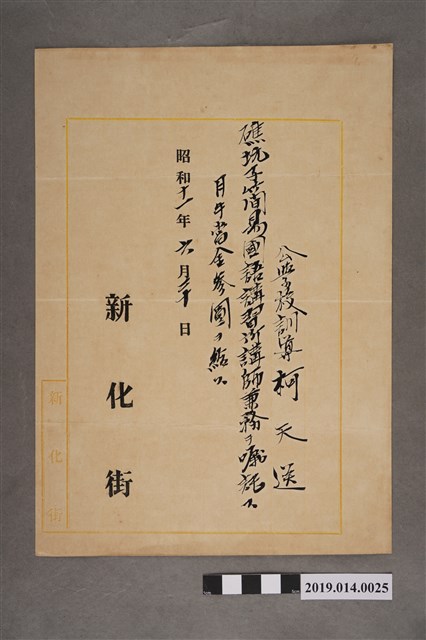 公學校訓導 柯天送
礁坑子簡易國語講習所講師兼務ヲ囑託ス
月手當金參圓ヲ給ス
昭和十一年 六月三十日
新化街
新化街
2019.014.0025